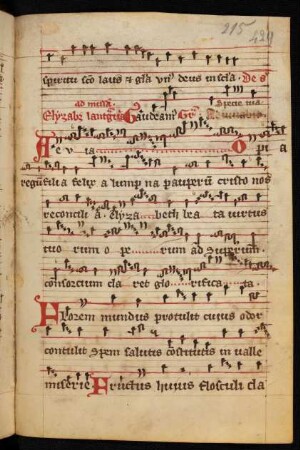 215
429
spiritu sco laus ⁊ gla vni deus in scla. De s
ad missa Spetie tua
Elyzabe lantgrauia Gaudeam Gr
Ae v ia O pi a
regu filia felix alump na pauperu cristo nos
reconcili a. Elyza beth bea ta virtus
tuo rum o pe rum ad supernum
consorcium cla ret glo rifica ta.
Florem mundus protulit cuius odor
contulit Spem salutis constitutis in valle
miserie Fructus huius flosculi cla